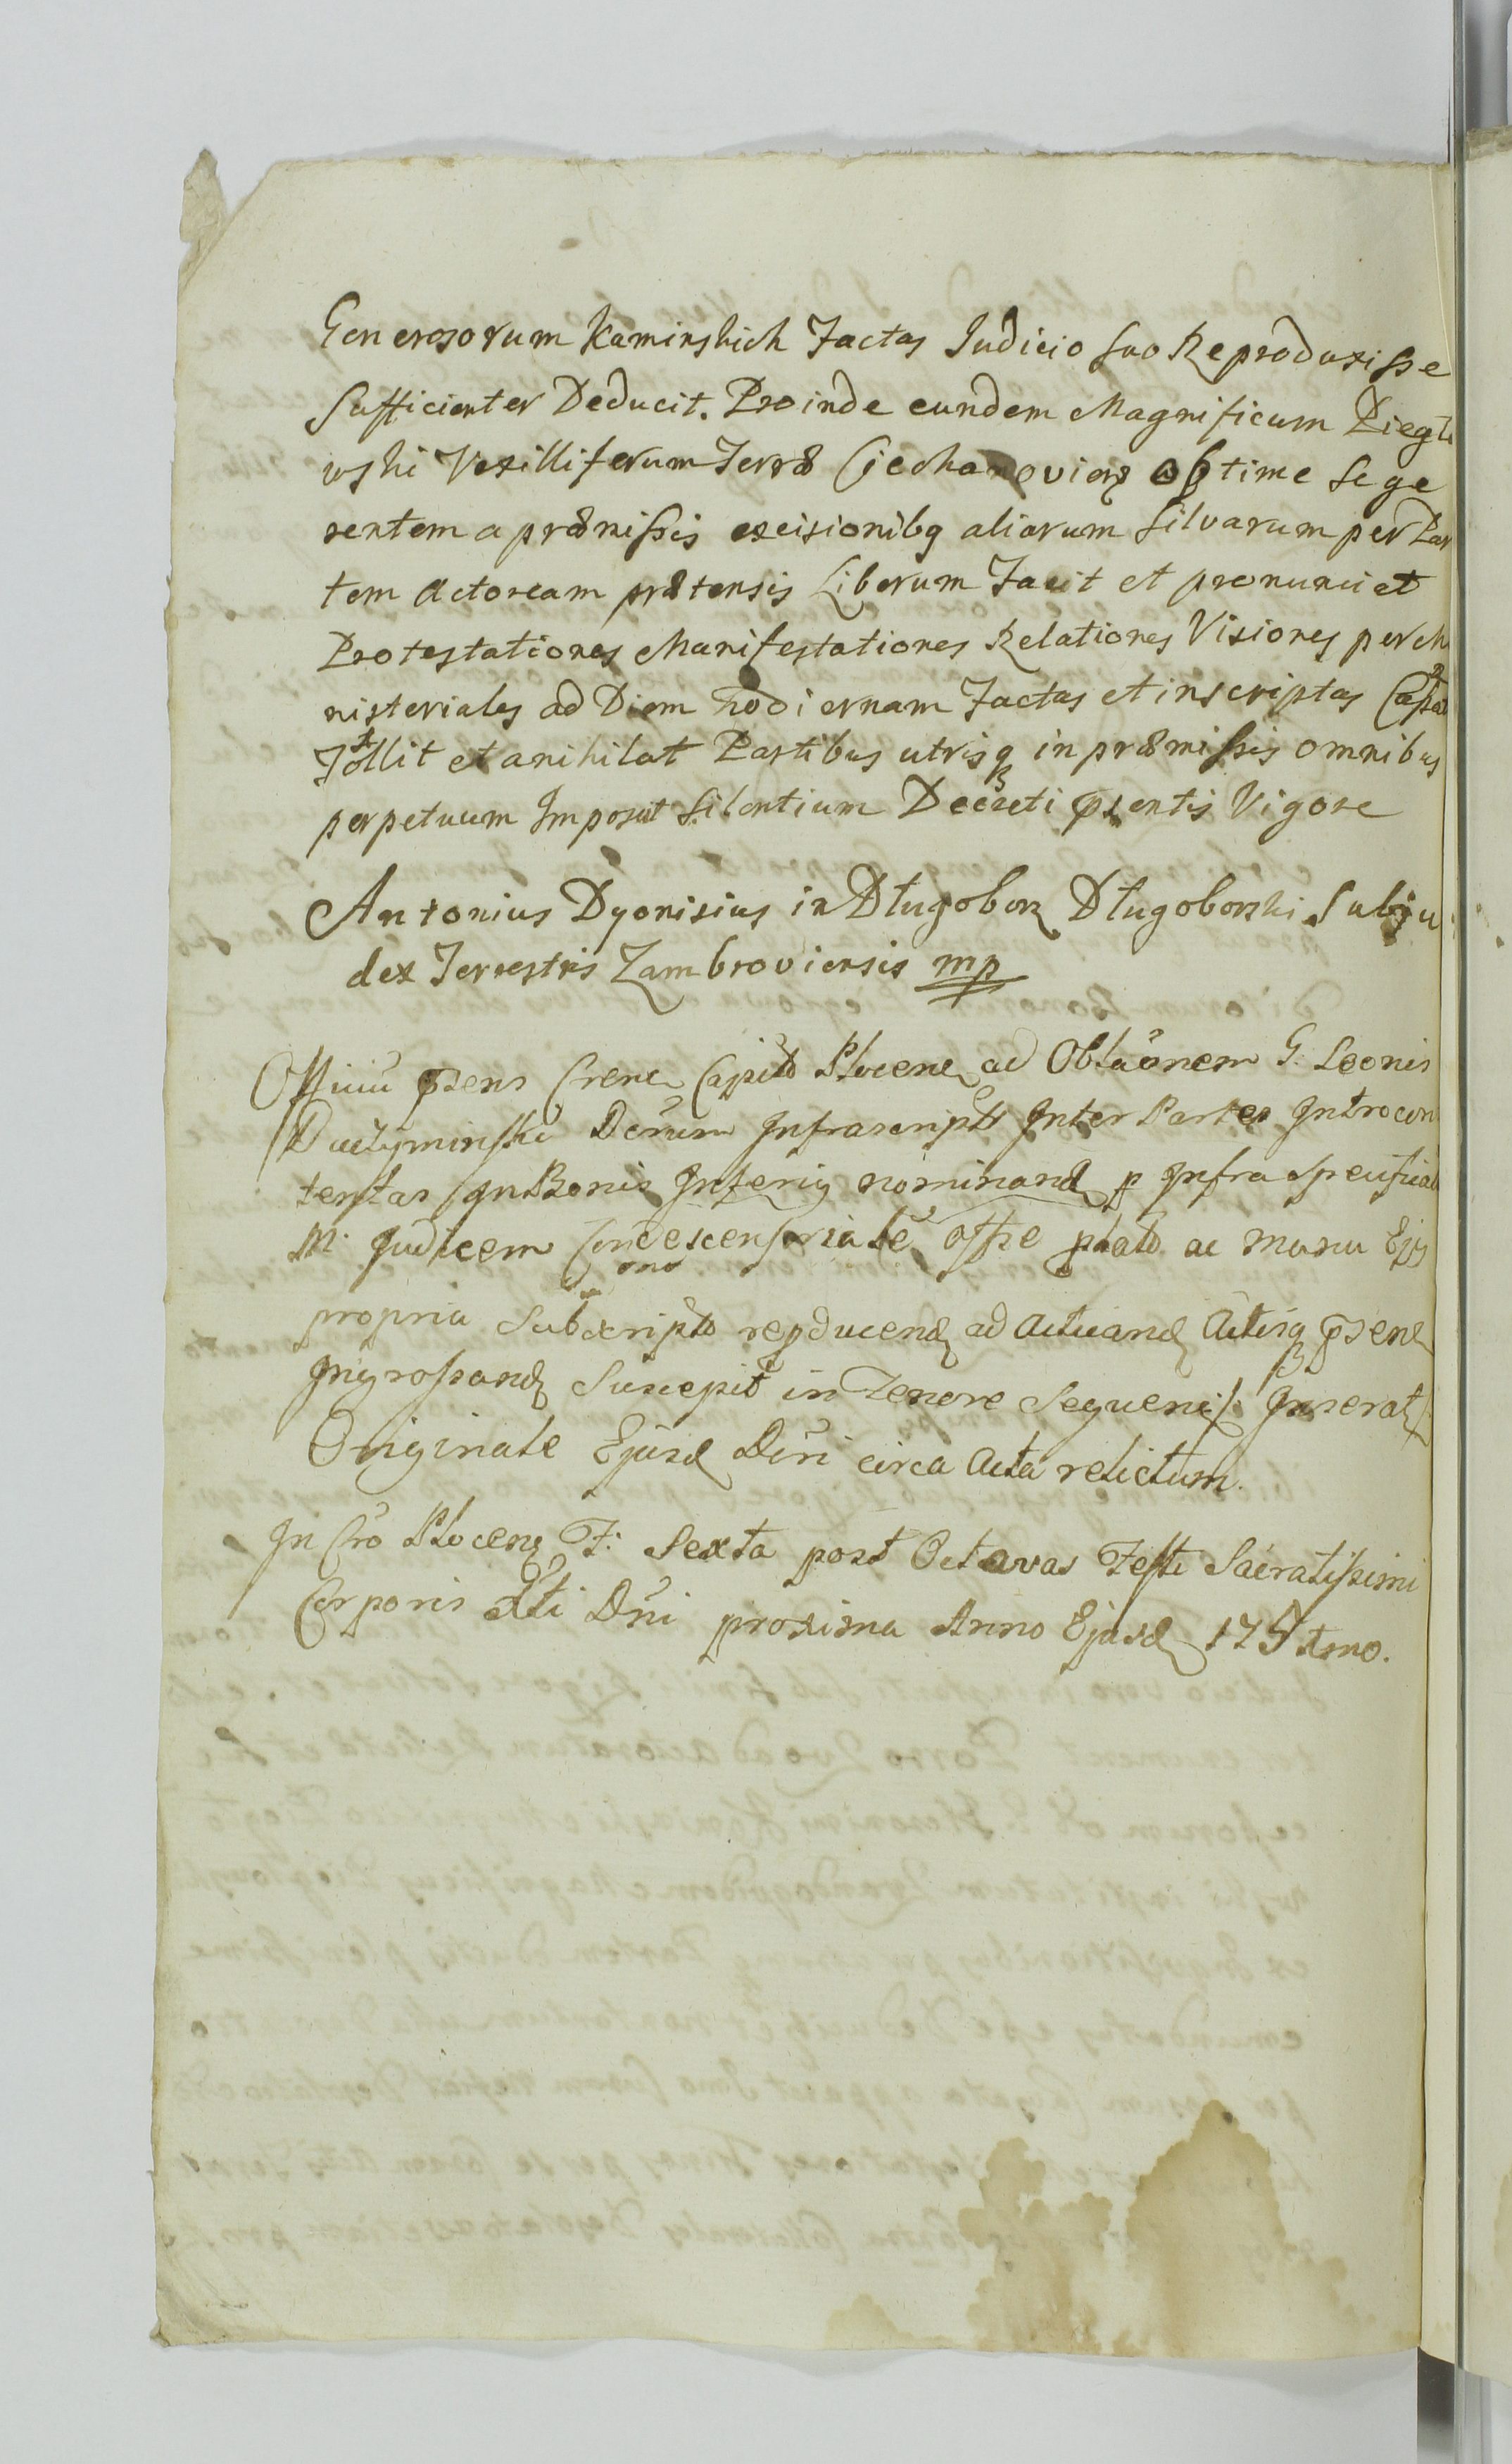 Generosorum Kaminskich Factas Judicio suo Reproduxisse
Sufficienter Deducit. Proinde eundem Magnificum Piegło
wski Vexilliferum Terræ Ciechanovien obtime se ge
rentem a præmissis excisionibq aliarum silvarum per Par
tem Actoream prætensis Liberum Facit et pronunciet
Protestationes Manifestationes Relationes Visiones per M
nisteriales ad Diem hodiernam Factas et inscriptas Cassat
Tollit et anihilat Partibus utrisq in præmissis omnibus
perpetuum Imposuit silentium Decreti psentis Vigore
Antonius Dyonisius in Długoborz Długoborski Subju
dex Terrestris Zambroviensis mp
Officiū psens Crene Capitō Plocene ad Oblāonem G. Leonis
Duczyminski Decrum Infrascriptō Inter Partes Introcon
tentas In Bonis Inferiq nominand p Infra specificat
M. Judicem Condescensoriale offse plato ac manu Ejq
propria Subscripto repducend ad Actuand Actisq psent
Ingrossand Suscepit in Tenore Sequenti. Inserat
Originale Ejusd Dcri circa Acta relictum.
In Cro Plocen F. Sexta post Octavas Festi Sacratissimi
Corporis Xti Dni proxima Anno Ejusd